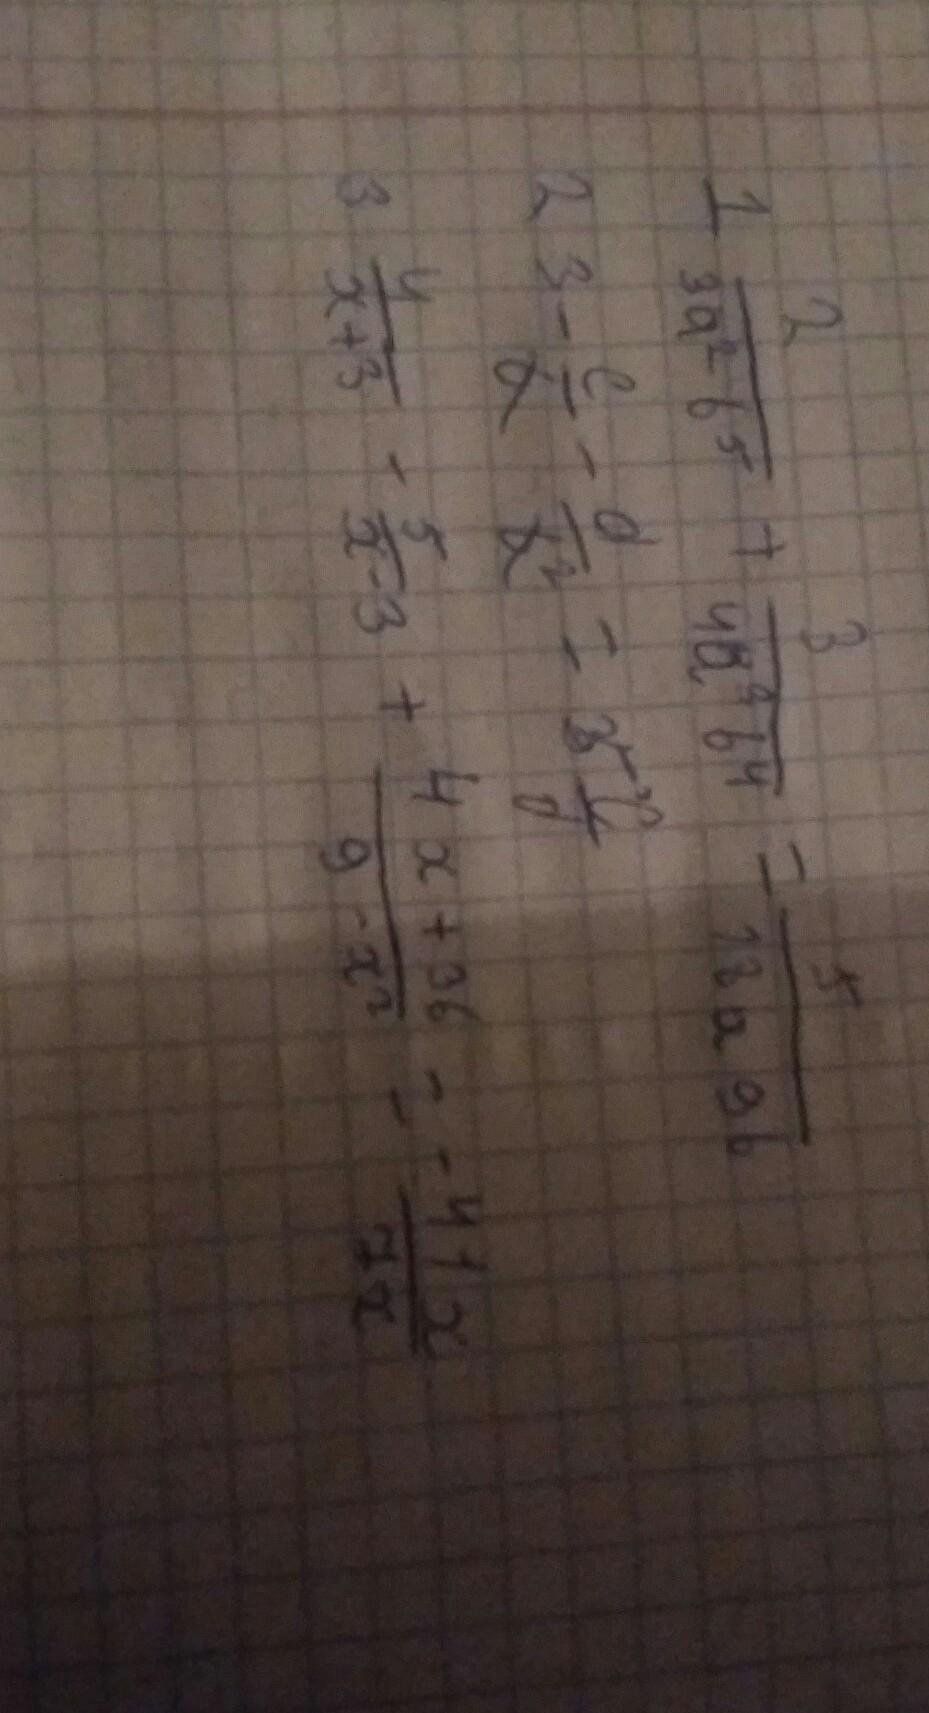 1 2/(3a²b⁵) + 3/(4a⁹b⁴) = 5/(12a9b)
2 3 - c/k - d/k² =
3 4/(x+3) - 5/(x-3) + (4x+36)/(9-x²) = -41x/7x